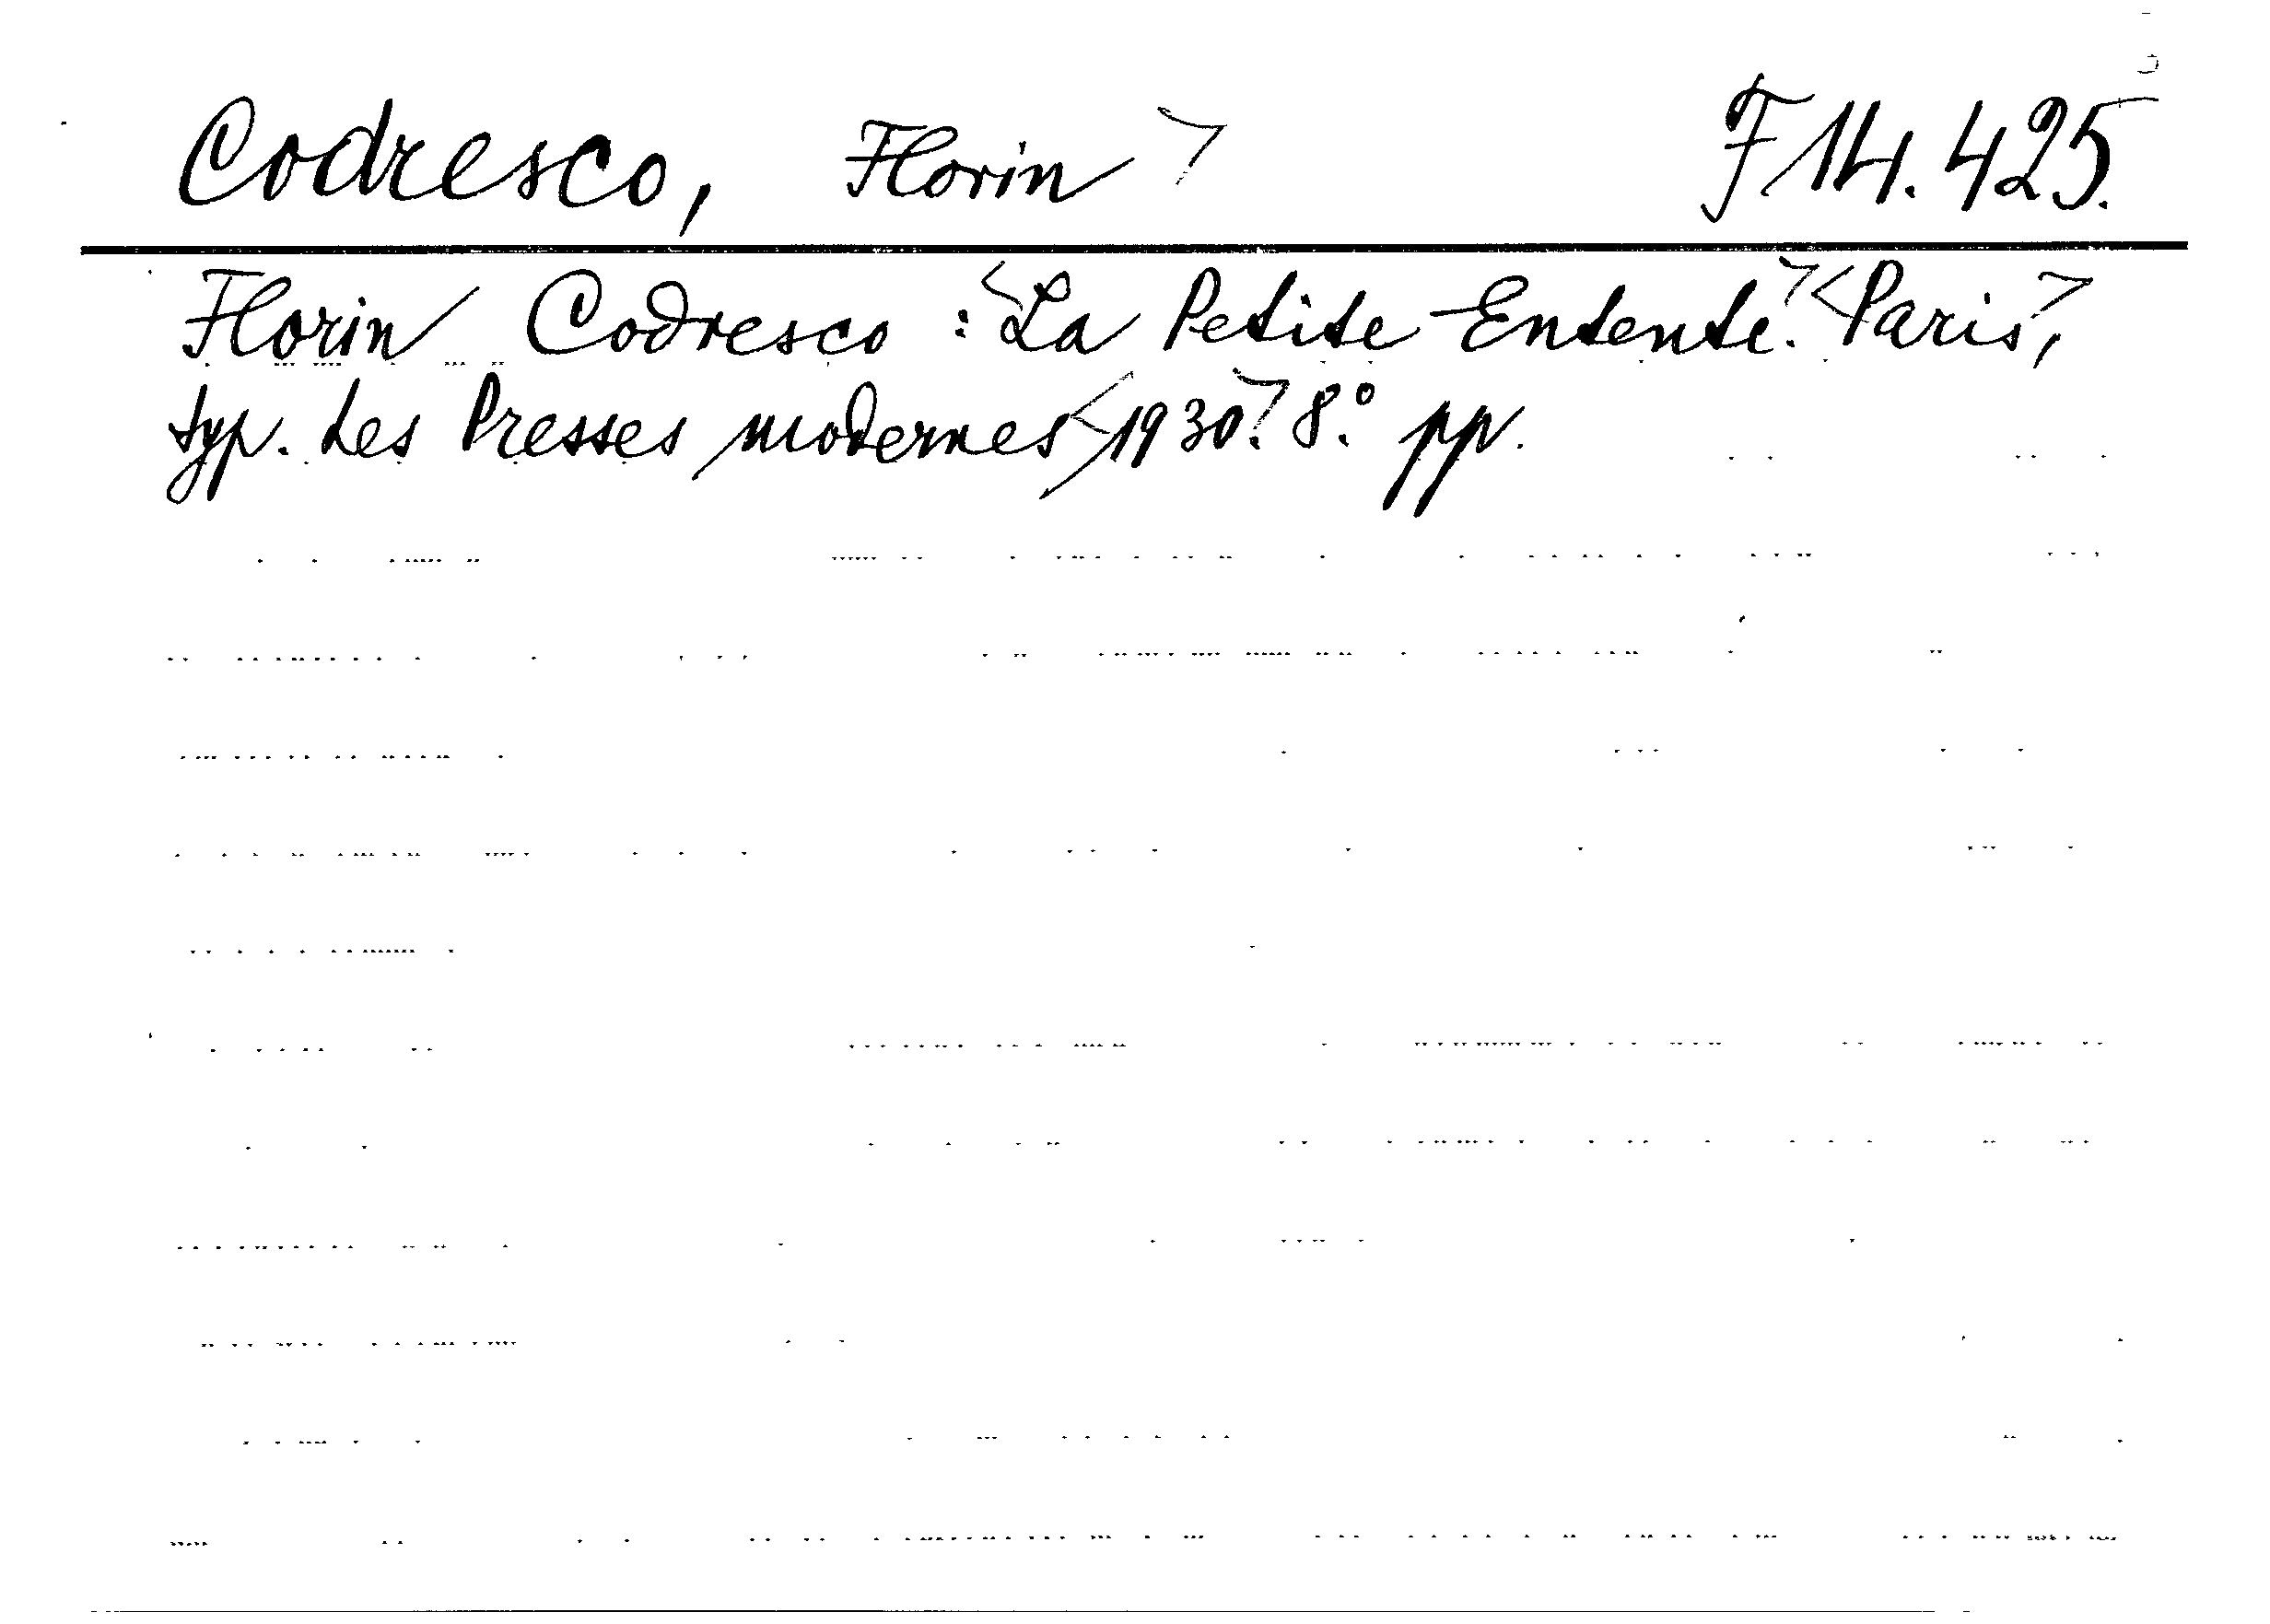 Codresco, Florin > F 14.425.
Florin Codresco: <La Petite Entente.> <Paris>,
typ. Les Presses modernes <1930.> 8.° pp.